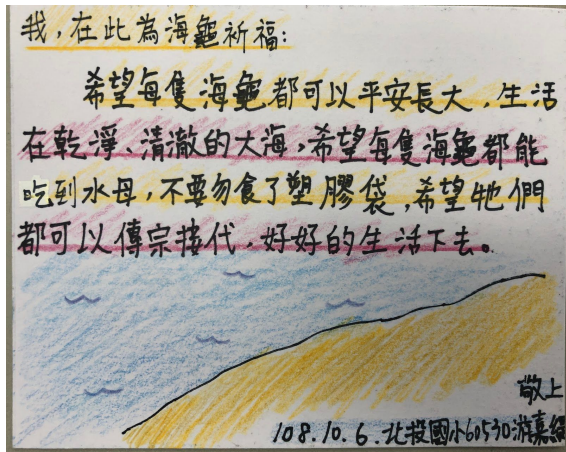 我，在此為海龜祈福：
希望每隻海龜都可以平安長大，生活
在乾淨、清澈的大海，希望每隻海龜都能
吃到水母，不要勿食了塑膠袋，希望牠們
都可以傳宗接代，好好的生活下去。
敬上
108.10.6.北投國小60530游嘉